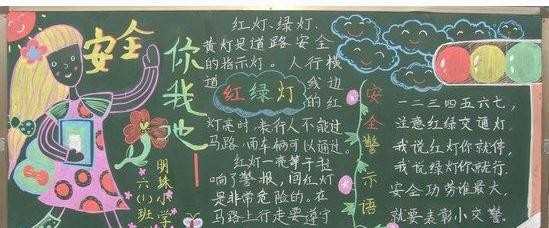 安全
你我他
明珠小学
六(1)班
红灯、绿灯、
黄灯是道路安全
的指示灯。人行横
道
线边
的红
红绿灯
灯亮时,表行人不能过
马路,而车辆可以通过。
红灯一亮等于拉
响了警报,闯红灯
是非常危险的。在
马路上行走要遵守
安全警示语
一二三四五六七,
注意红绿交通灯
我说红灯你就停,
我说绿灯你就行。
安全功劳谁最大,
就要表彰小交警。